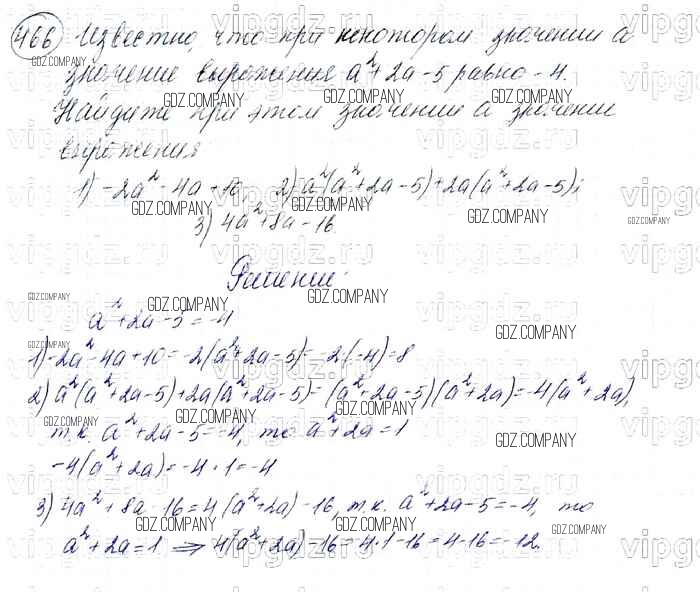 466 Известно, что при некотором значении a
значение выражения a²+2a-5 равно -4.
Найдите при этом значении a значение
выражения
1) -2a²-4a+10, 2) a²(a²+2a-5)+2a(a²+2a-5);
3) 4a²+8a-16.
Решение:
a²+2a-5=-4
1) -2a²-4a+10=-2(a²+2a-5)=-2(-4)=8
2) a²(a²+2a-5)+2a(a²+2a-5)=(a²+2a-5)(a²+2a)=-4(a²+2a),
т.к. a²+2a-5=-4, то a²+2a=1
-4(a²+2a)=-4·1=-4
3) 4a²+8a-16=4(a²+2a)-16, т.к. a²+2a-5=-4, то
a²+2a=1 ⇒ 4(a²+2a)-16=4·1-16=4-16=-12.